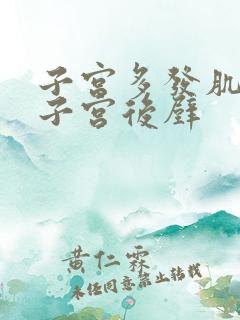 子宮多發肌
子宮後壁
黄仁霖
未经同意禁止转载